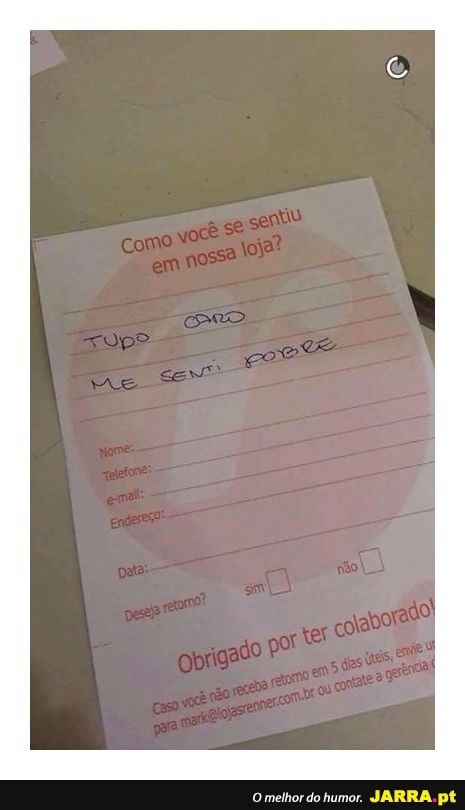 Como você se sentiu
em nossa loja?
TUDO CARO
ME SENTI POBRE
Nome:
Telefone:
e-mail:
Endereço:
Data:
Deseja retorno? sim não
Obrigado por ter colaborado!
Caso você não receba retorno em 5 dias úteis, envie
para mark@lojasrenner.com.br ou contate a gerência
O melhor do humor. JARRA.pt